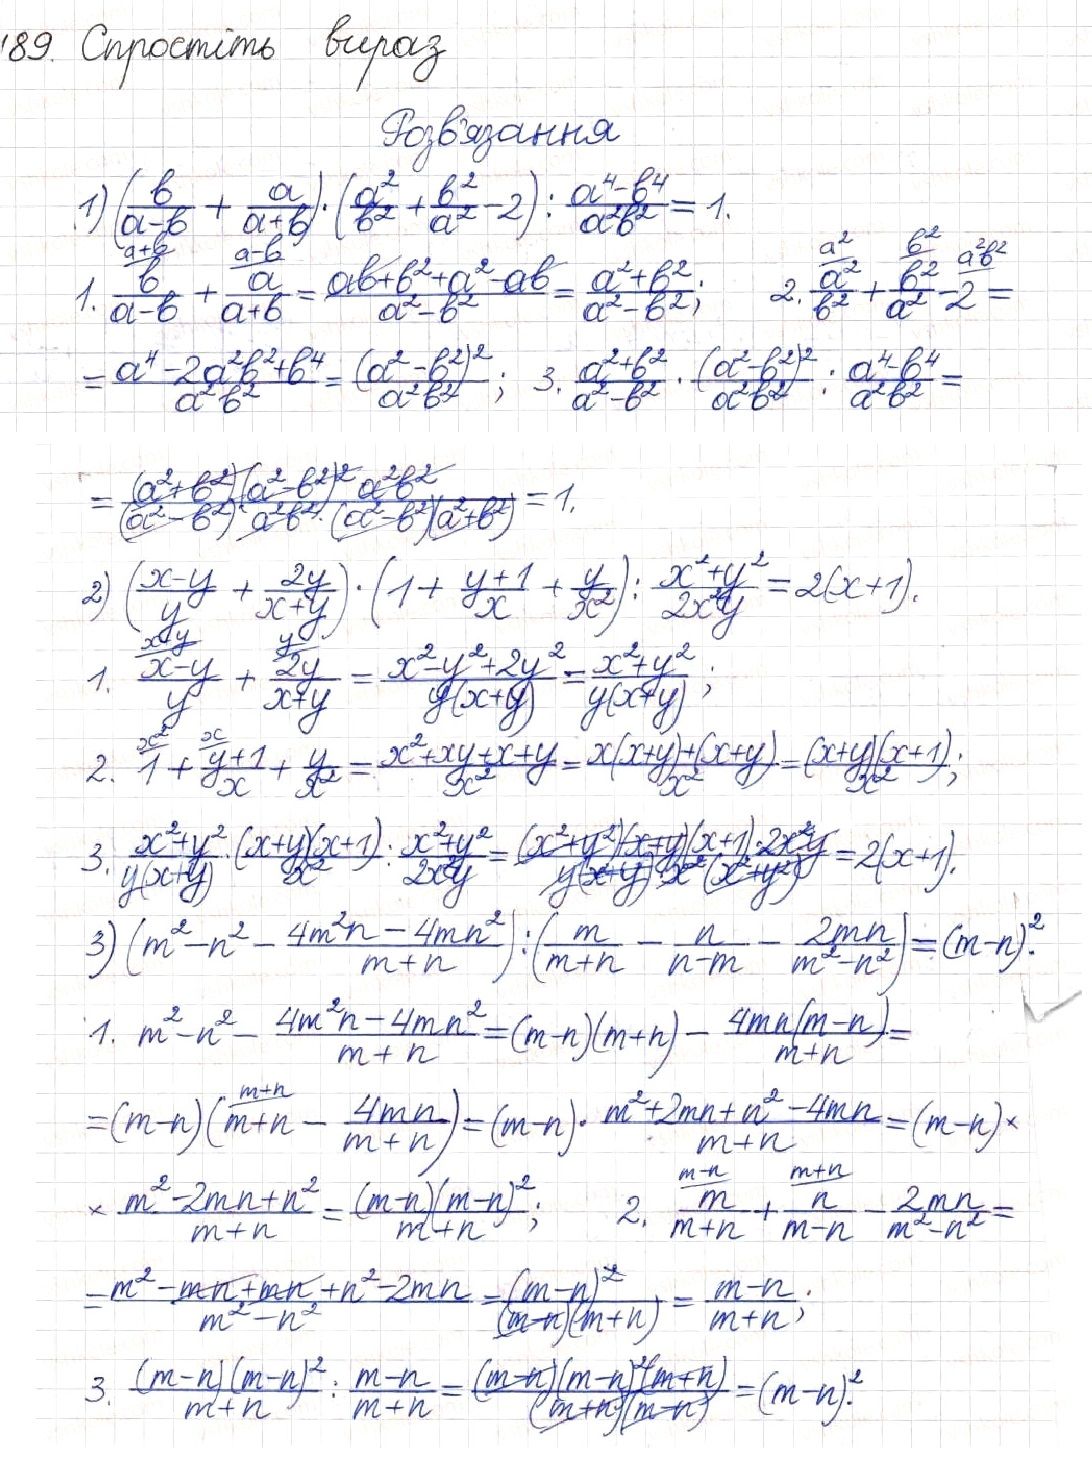 189. Спростіть вираз
Розв'язання
1) (b/(a-b) + a/(a+b)) · (a²/b² + b²/a² - 2) : (a⁴-b⁴)/(a²b²) = 1.
1. (a+b/ b/(a-b) + (a-b/ a/(a+b) = (ab+b²+a²-ab)/(a²-b²) = (a²+b²)/(a²-b²); 2. a²/ a²/b² + b²/ b²/a² - a²b²/ 2 =
= (a⁴-2a²b²+b⁴)/(a²b²) = (a²-b²)²/(a²b²); 3. (a²+b²)/(a²-b²) · (a²-b²)²/(a²b²) : (a⁴-b⁴)/(a²b²) =
= ((a²+b²)(a²-b²)² a²b²)/((a²-b²)·a²b²·(a²-b²)(a²+b²)) = 1.
2) ((x-y)/y + 2y/(x+y)) · (1 + (y+1)/x + y/x²) : (x²+y²)/(2x²y) = 2(x+1).
1. x+y/ (x-y)/y + y/ 2y/(x+y) = (x²-y²+2y²)/(y(x+y)) = (x²+y²)/(y(x+y));
2. x²/ 1 + x/ (y+1)/x + y/x² = (x²+xy+x+y)/x² = (x(x+y)+(x+y))/x² = ((x+y)(x+1))/x²;
3. (x²+y²)/(y(x+y)) · ((x+y)(x+1))/x² : (x²+y²)/(2x²y) = ((x²+y²)(x+y)(x+1)·2x²y)/(y(x+y) x² (x²+y²)) = 2(x+1).
3) (m²-n² - (4m²n-4mn²)/(m+n)) : (m/(m+n) - n/(n-m) - 2mn/(m²-n²)) = (m-n)².
1. m²-n² - (4m²n-4mn²)/(m+n) = (m-n)(m+n) - (4mn(m-n))/(m+n) =
= (m-n)(m+n/ m+n - 4mn/(m+n)) = (m-n)· (m²+2mn+n²-4mn)/(m+n) = (m-n) ×
× (m²-2mn+n²)/(m+n) = ((m-n)(m-n)²)/(m+n); 2. m-n/ m/(m+n) + m+n/ n/(m-n) - 2mn/(m²-n²) =
= (m²-mn+mn+n²-2mn)/(m²-n²) = (m-n)²/((m-n)(m+n)) = (m-n)/(m+n);
3. ((m-n)(m-n)²)/(m+n) : (m-n)/(m+n) = ((m-n)(m-n)²(m+n))/((m+n)(m-n)) = (m-n)².